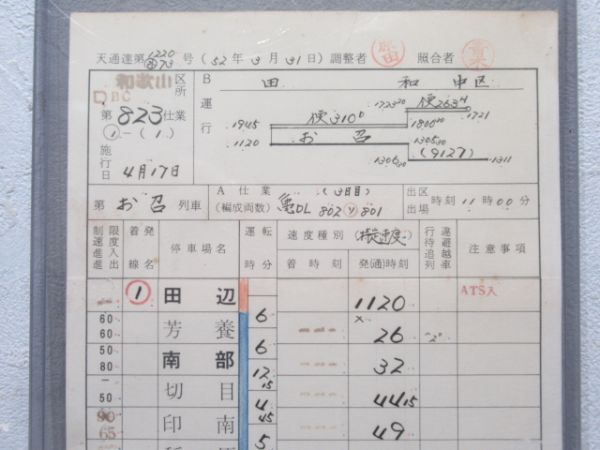 天通達第1220号(52年3月31日)調整者 照合者
和歌山区所 B 田 和 中区
BC
第823仕業 運行 1945 便310D 1723 20 便263H 1721
①-(1) 1120 お召 1806 00
1305 30
施行日 4月17日 1306 00 (9127) 1311
第お召列車 A仕業 (編成両数) DL 802 801 出区出場時刻11時00分
制限速度進入進出 着発線名 停車場名 運転時分 速度種別(特定速度) 着時刻 発(通)時刻 行違待避追越列車 注意事項
① 田辺 1120 ATS入
6
60 60 芳養 26 "2"
6
50 80 南部 32
12 15
50 切目 44 15
4 45
90 65 印南 49
5